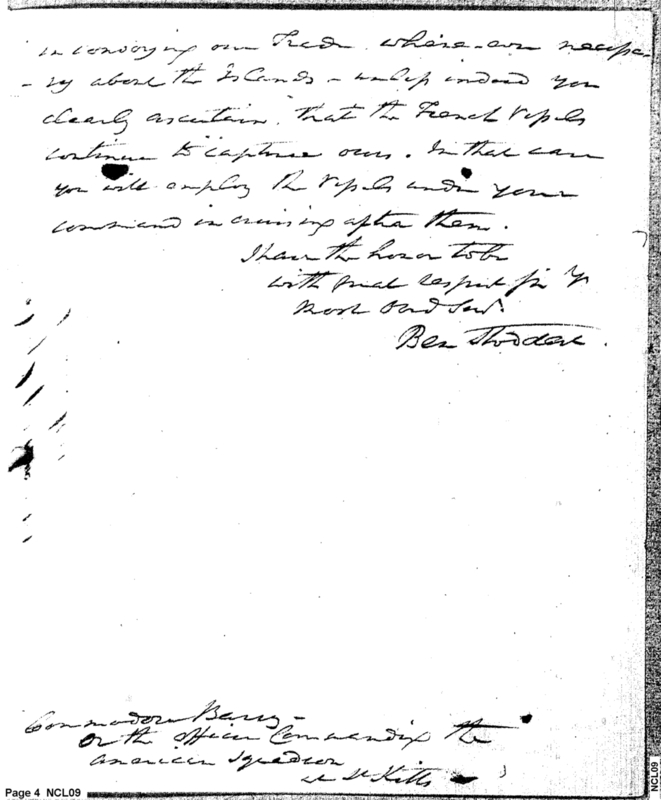 in convoying our Trade where-ever necessa-
-ry about the Islands - unless indeed you
clearly ascertain, that the French Vessels
continue to capture ours. In that case
you will employ the Vessels under your
command in cruising after them.
I have the honor to be
with great respect Sir Yr
most Obed Servt.
Ben Stoddert.
Commodore Barry -
Or the officer Commanding the
american Squadron
at St Kitts
Page 4 NCL09
NCL09